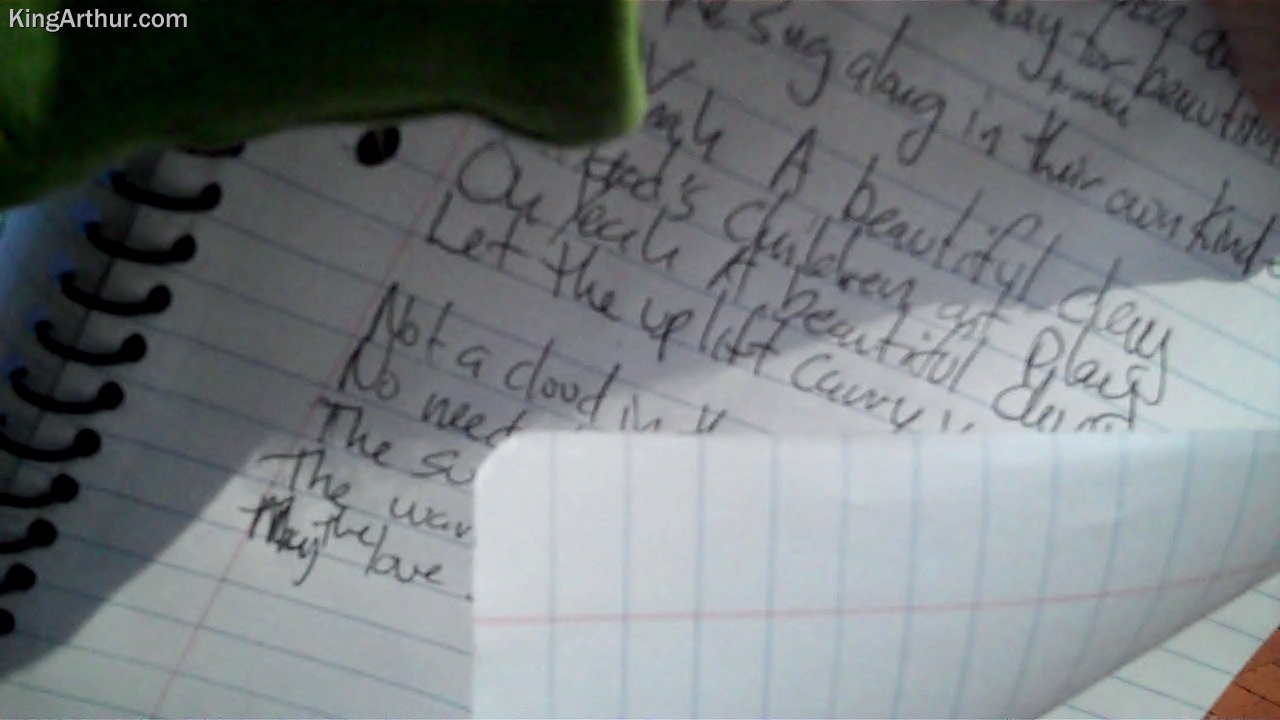 KingArthur.com
day for beautiful
along in their own kind
Yeah A beautiful day
God's children at play
Oh Yeah A beautiful day
Let the uplift carry
Not a cloud in
No need
The
The
They the love